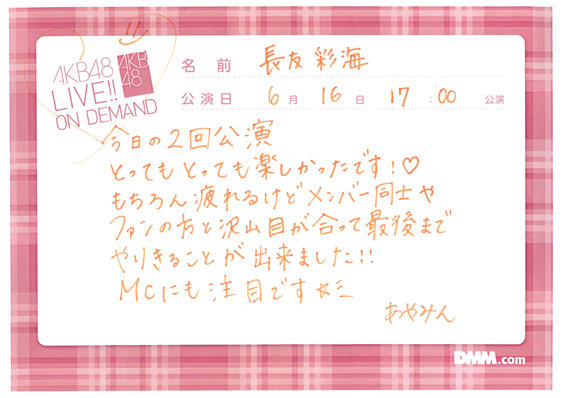 AKB48
LIVE!!
ON DEMAND
AKB
48
名前 長友彩海
公演日 6月 16日 17:00 公演
今日の2回公演
とってもとっても楽しかったです!♡
もちろん疲れるけどメンバー同士や
ファンの方と沢山目が合って最後まで
やりきることが出来ました!!
MCにも注目です☆ミ
あやみん
DMM.com